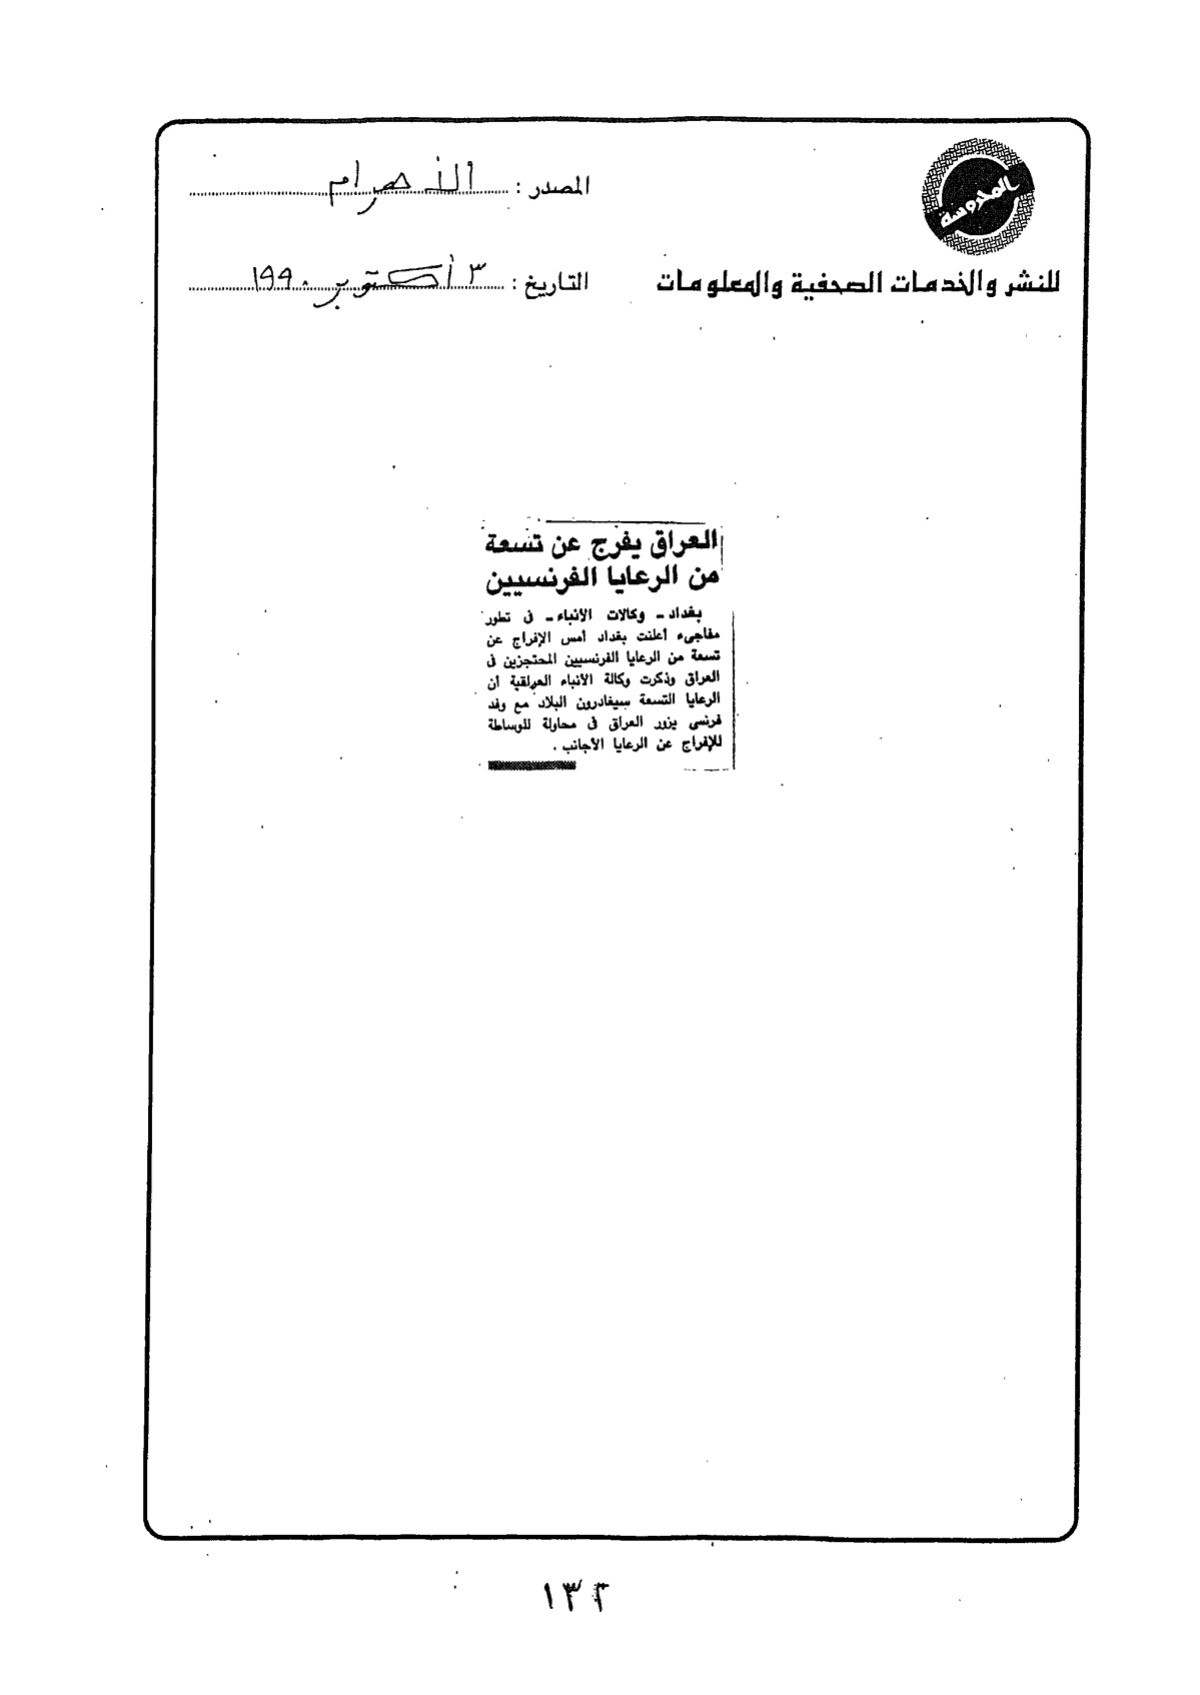 المحروسة
للنشر والخدمات الصحفية والمعلومات
المصدر : الأهرام
التاريخ : ٣ أكتوبر ١٩٩٠
العراق يفرج عن تسعة
من الرعايا الفرنسيين
بغداد ـ وكالات الأنباء ـ فى تطور
مفاجىء أعلنت بغداد أمس الإفراج عن
تسعة من الرعايا الفرنسيين المحتجزين فى
العراق وذكرت وكالة الأنباء العراقية أن
الرعايا التسعة سيغادرون البلاد مع وفد
فرنسى يزور العراق فى محاولة للوساطة
للإفراج عن الرعايا الأجانب .
١٣٢